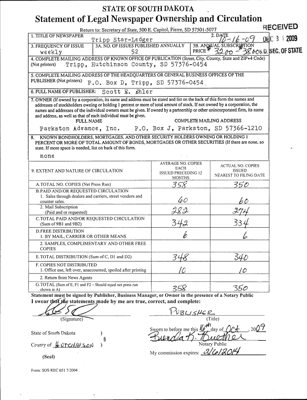 STATE OF SOUTH DAKOTA
Statement of Legal Newspaper Ownership and Circulation
Return to: Secretary of State, 500 E. Capitol, Pierre, SD 57501-5077
RECEIVED
1. TITLE OF NEWSPAPER
Tripp Star-Ledger
2. DATE
10-16-09
2009
3. FREQUENCY OF ISSUE
weekly
3A. NO. OF ISSUES PUBLISHED ANNUALLY
52
3B. ANNUAL SUBSCRIPTION
PRICE $
S.D. SEC. OF STATE
4. COMPLETE MAILING ADDRESS OF KNOWN OFFICE OF PUBLICATION (Street, City, County, State and ZIP+4 Code)
(Not printer)
Tripp, Hutchinson County, SD 57376-0454
5. COMPLETE MAILING ADDRESS OF THE HEADQUARTERS OR GENERAL BUSINESS OFFICES OF THE
PUBLISHER (Not printer)
P.O. Box D, Tripp, SD 57376-0454
6. FULL NAME OF PUBLISHER:
Scott E. Ehler
7. OWNER (If owned by a corporation, its name and address must be stated and also the names and
addresses of stockholders owning or holding 1 percent or more of total amount of stock. If not owned by a corporation, the
names and addresses of the individual owners must be given. If owned by a partnership or other unincorporated firm, its name
and address, as well as that of each individual must be given.)
FULL NAME
COMPLETE MAILING ADDRESS
Parkston Advance, Inc.
P.O. Box J, Parkston, SD 57366-1210
8. KNOWN BONDHOLDERS, MORTGAGEES, AND OTHER SECURITY HOLDERS OWNING OR HOLDING 1
PERCENT OR MORE OF TOTAL AMOUNT OF BONDS, MORTGAGES OR OTHER SECURITIES (If there are none, so
state. If more space is needed, list on back of this form.
none
9. EXTENT AND NATURE OF CIRCULATION
AVERAGE NO. COPIES
EACH
ISSUED PRECEDING 12
MONTHS
ACTUAL NO. COPIES
ISSUED
NEAREST TO FILING DATE
A. TOTAL NO. COPIES (Net Press Run)
358
350
B. PAID AND/OR REQUESTED CIRCULATION
1. Sales through dealers and carriers, street vendors and
counter sales.
60
60
2. Mail Subscription
(Paid and or requested)
282
274
C. TOTAL PAID AND/OR REQUESTED CIRCULATION
(Sum of 9B1 and 9B2)
342
334
D. FREE DISTRIBUTION
1. BY MAIL, CARRIER OR OTHER MEANS
6
6
2. SAMPLES, COMPLIMENTARY AND OTHER FREE
COPIES
E. TOTAL DISTRIBUTION (Sum of C, D1 and D2)
348
340
F. COPIES NOT DISTRIBUTED
1. Office use, left over, unaccounted, spoiled after printing
10
10
2. Return from News Agents
G. TOTAL (Sum of E, F1 and F2 - Should equal net press run
shown in A)
358
350
Statement must be signed by Publisher, Business Manager, or Owner in the presence of a Notary Public
I swear that the statements made by me are true, correct, and complete:
(Signature)
PUBLISHER
(Title)
State of South Dakota )
Sworn to before me this 16th day of Oct 2009
County of HUTCHINSON )
Notary Public
(Seal)
My commission expires: 2/6/2014
Form: SOS REC 051 7/2004